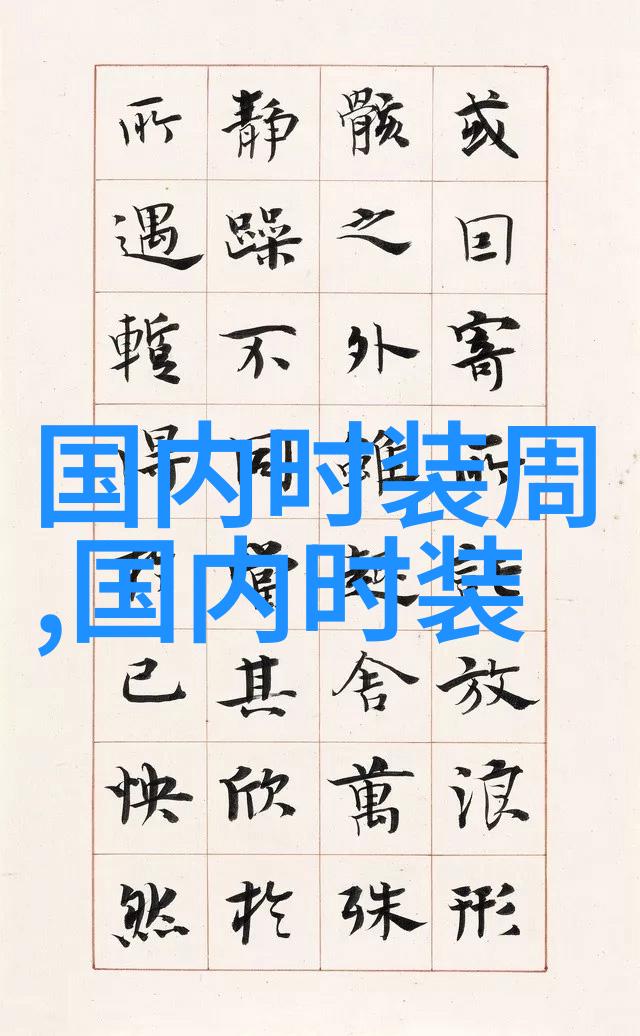 或囙寄所託放浪形
骸之外雖趣舍萬殊
靜躁不同當其欣於
所遇暫得於已怏然
国内时装周
,国内时装